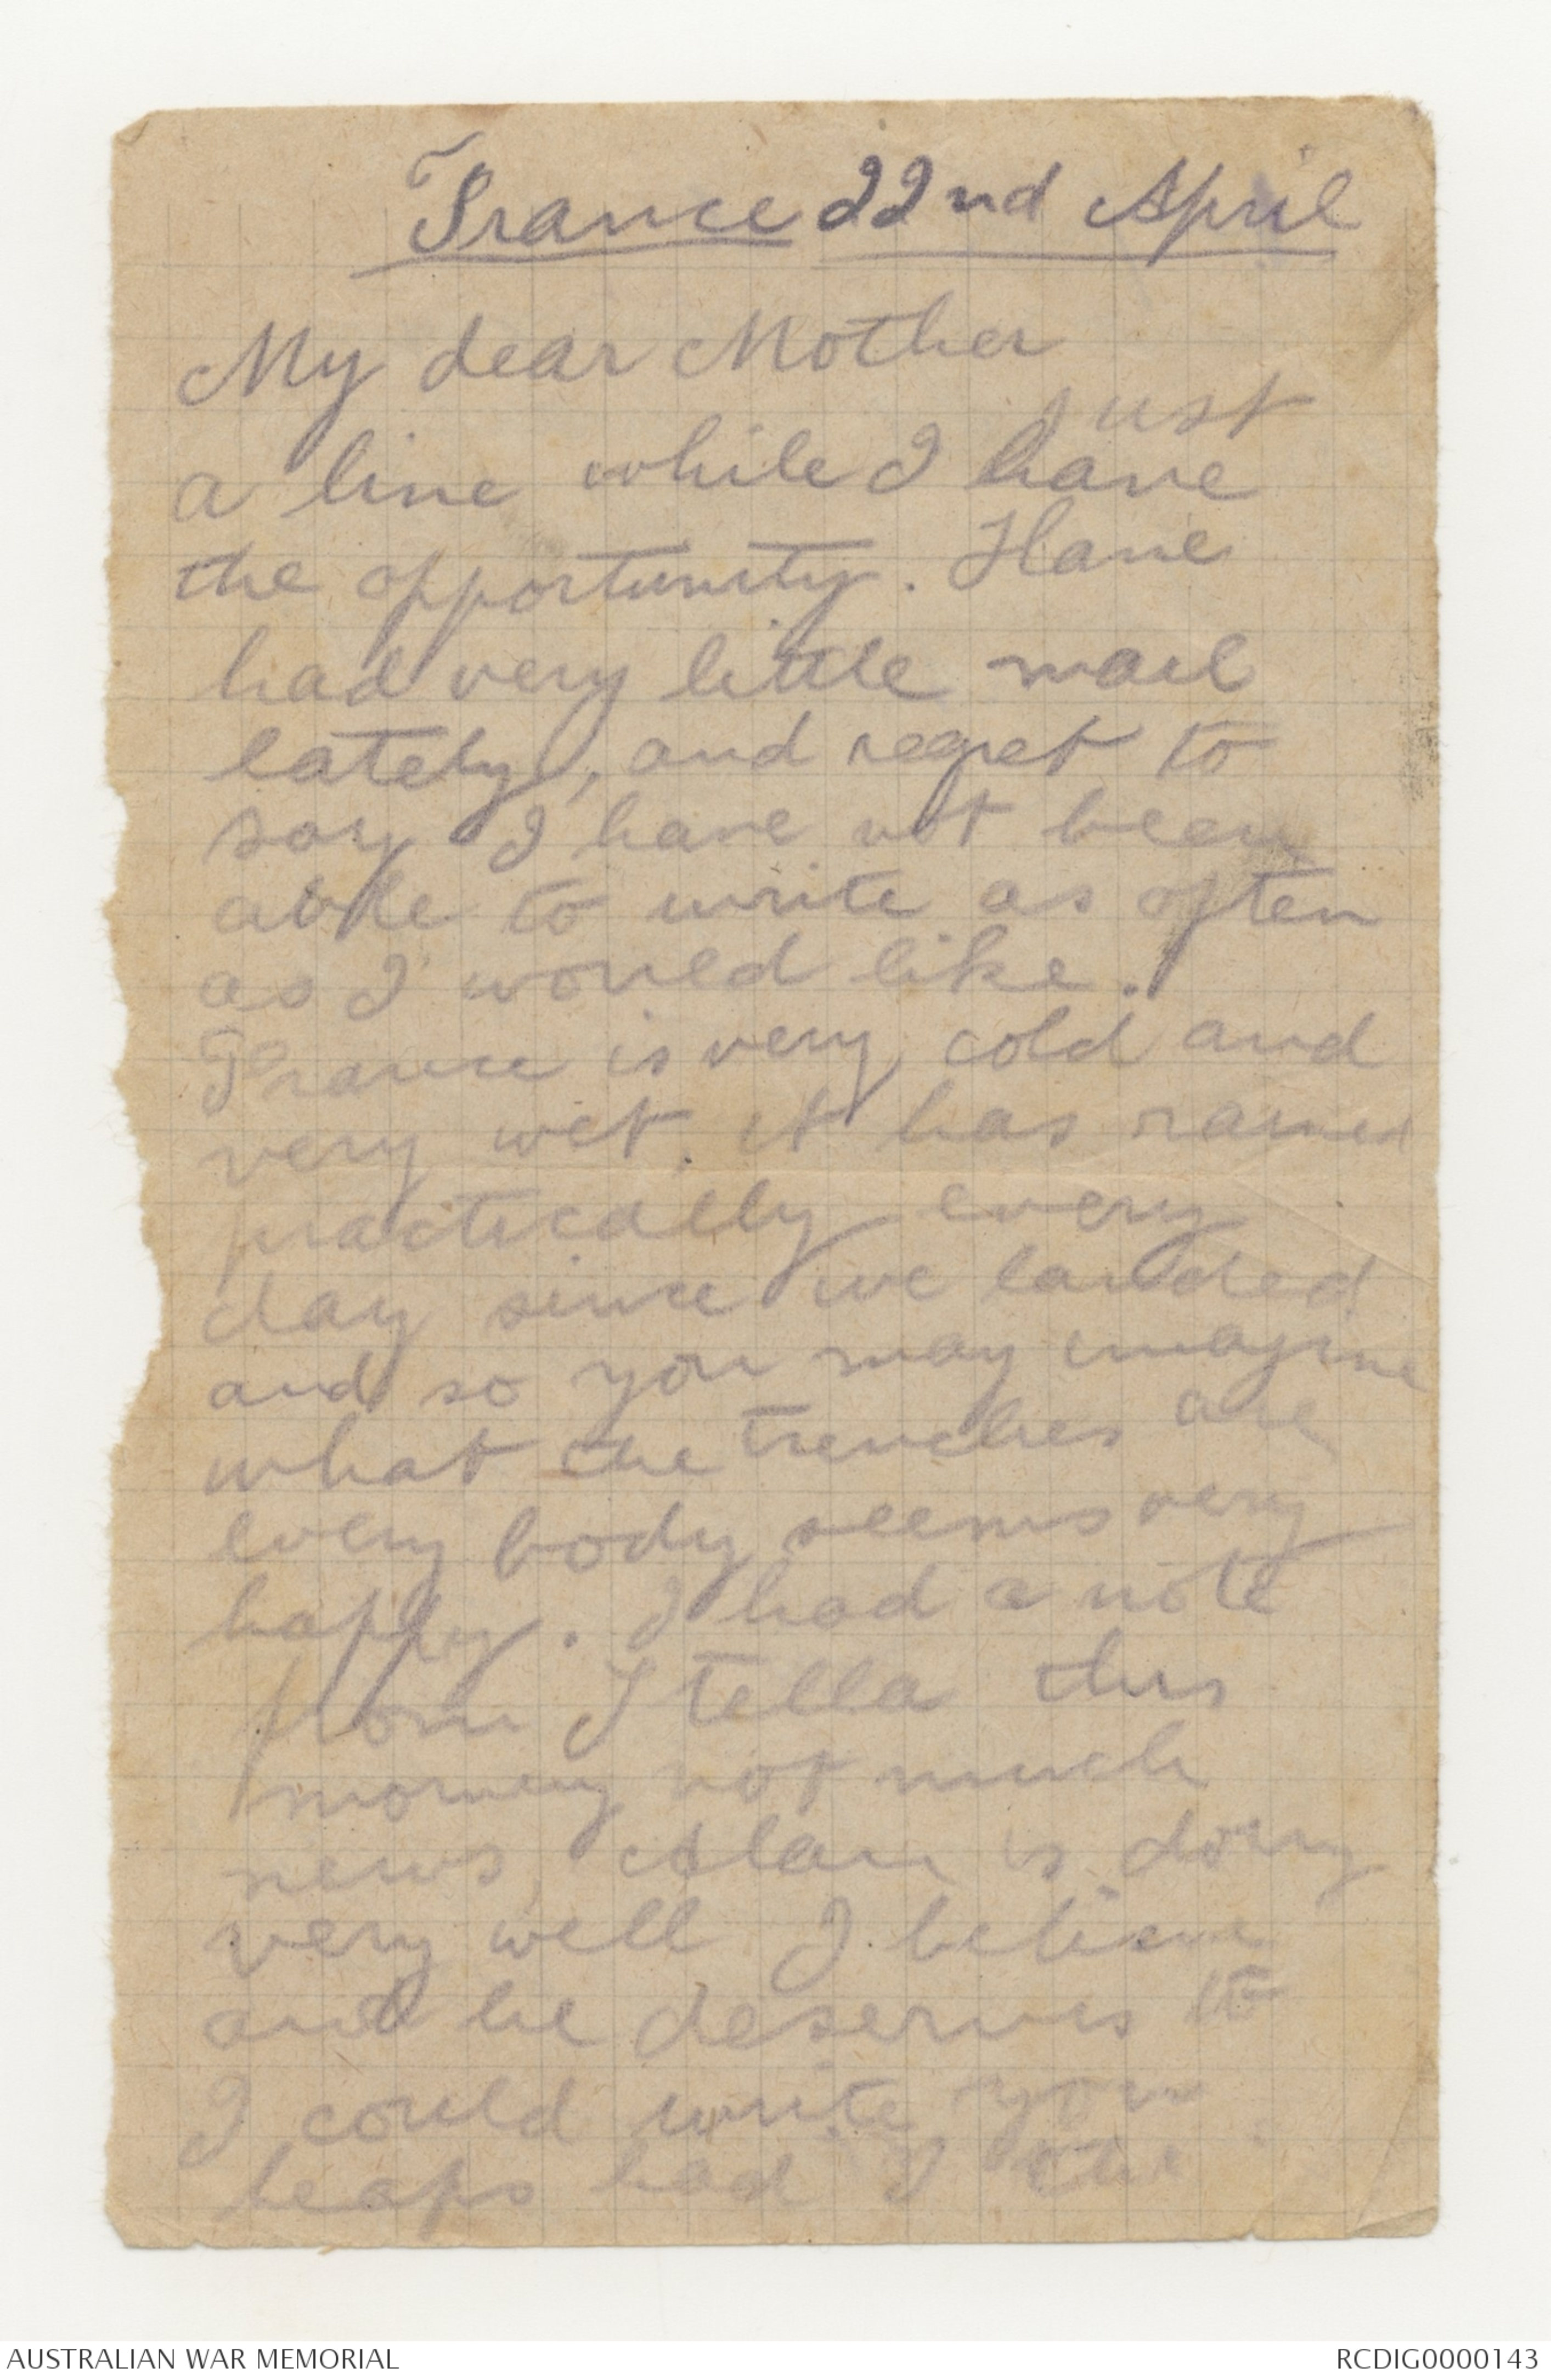 France 22nd April
My dear Mother
Just
a line while I have
the opportunity. Have
had very little mail
lately, and regret to
say I have not been
able to write as often
as I would like.
France is very cold and
very wet, it has rained
practically every
day since we landed
and so you may imagine
what the trenches are
every body seems very
happy. I had a note
from Stella this
morning not much
news, Alan is doing
very well I believe
and he deserves to
I could write you
heaps had I the
AUSTRALIAN WAR MEMORIAL
RCDIG0000143